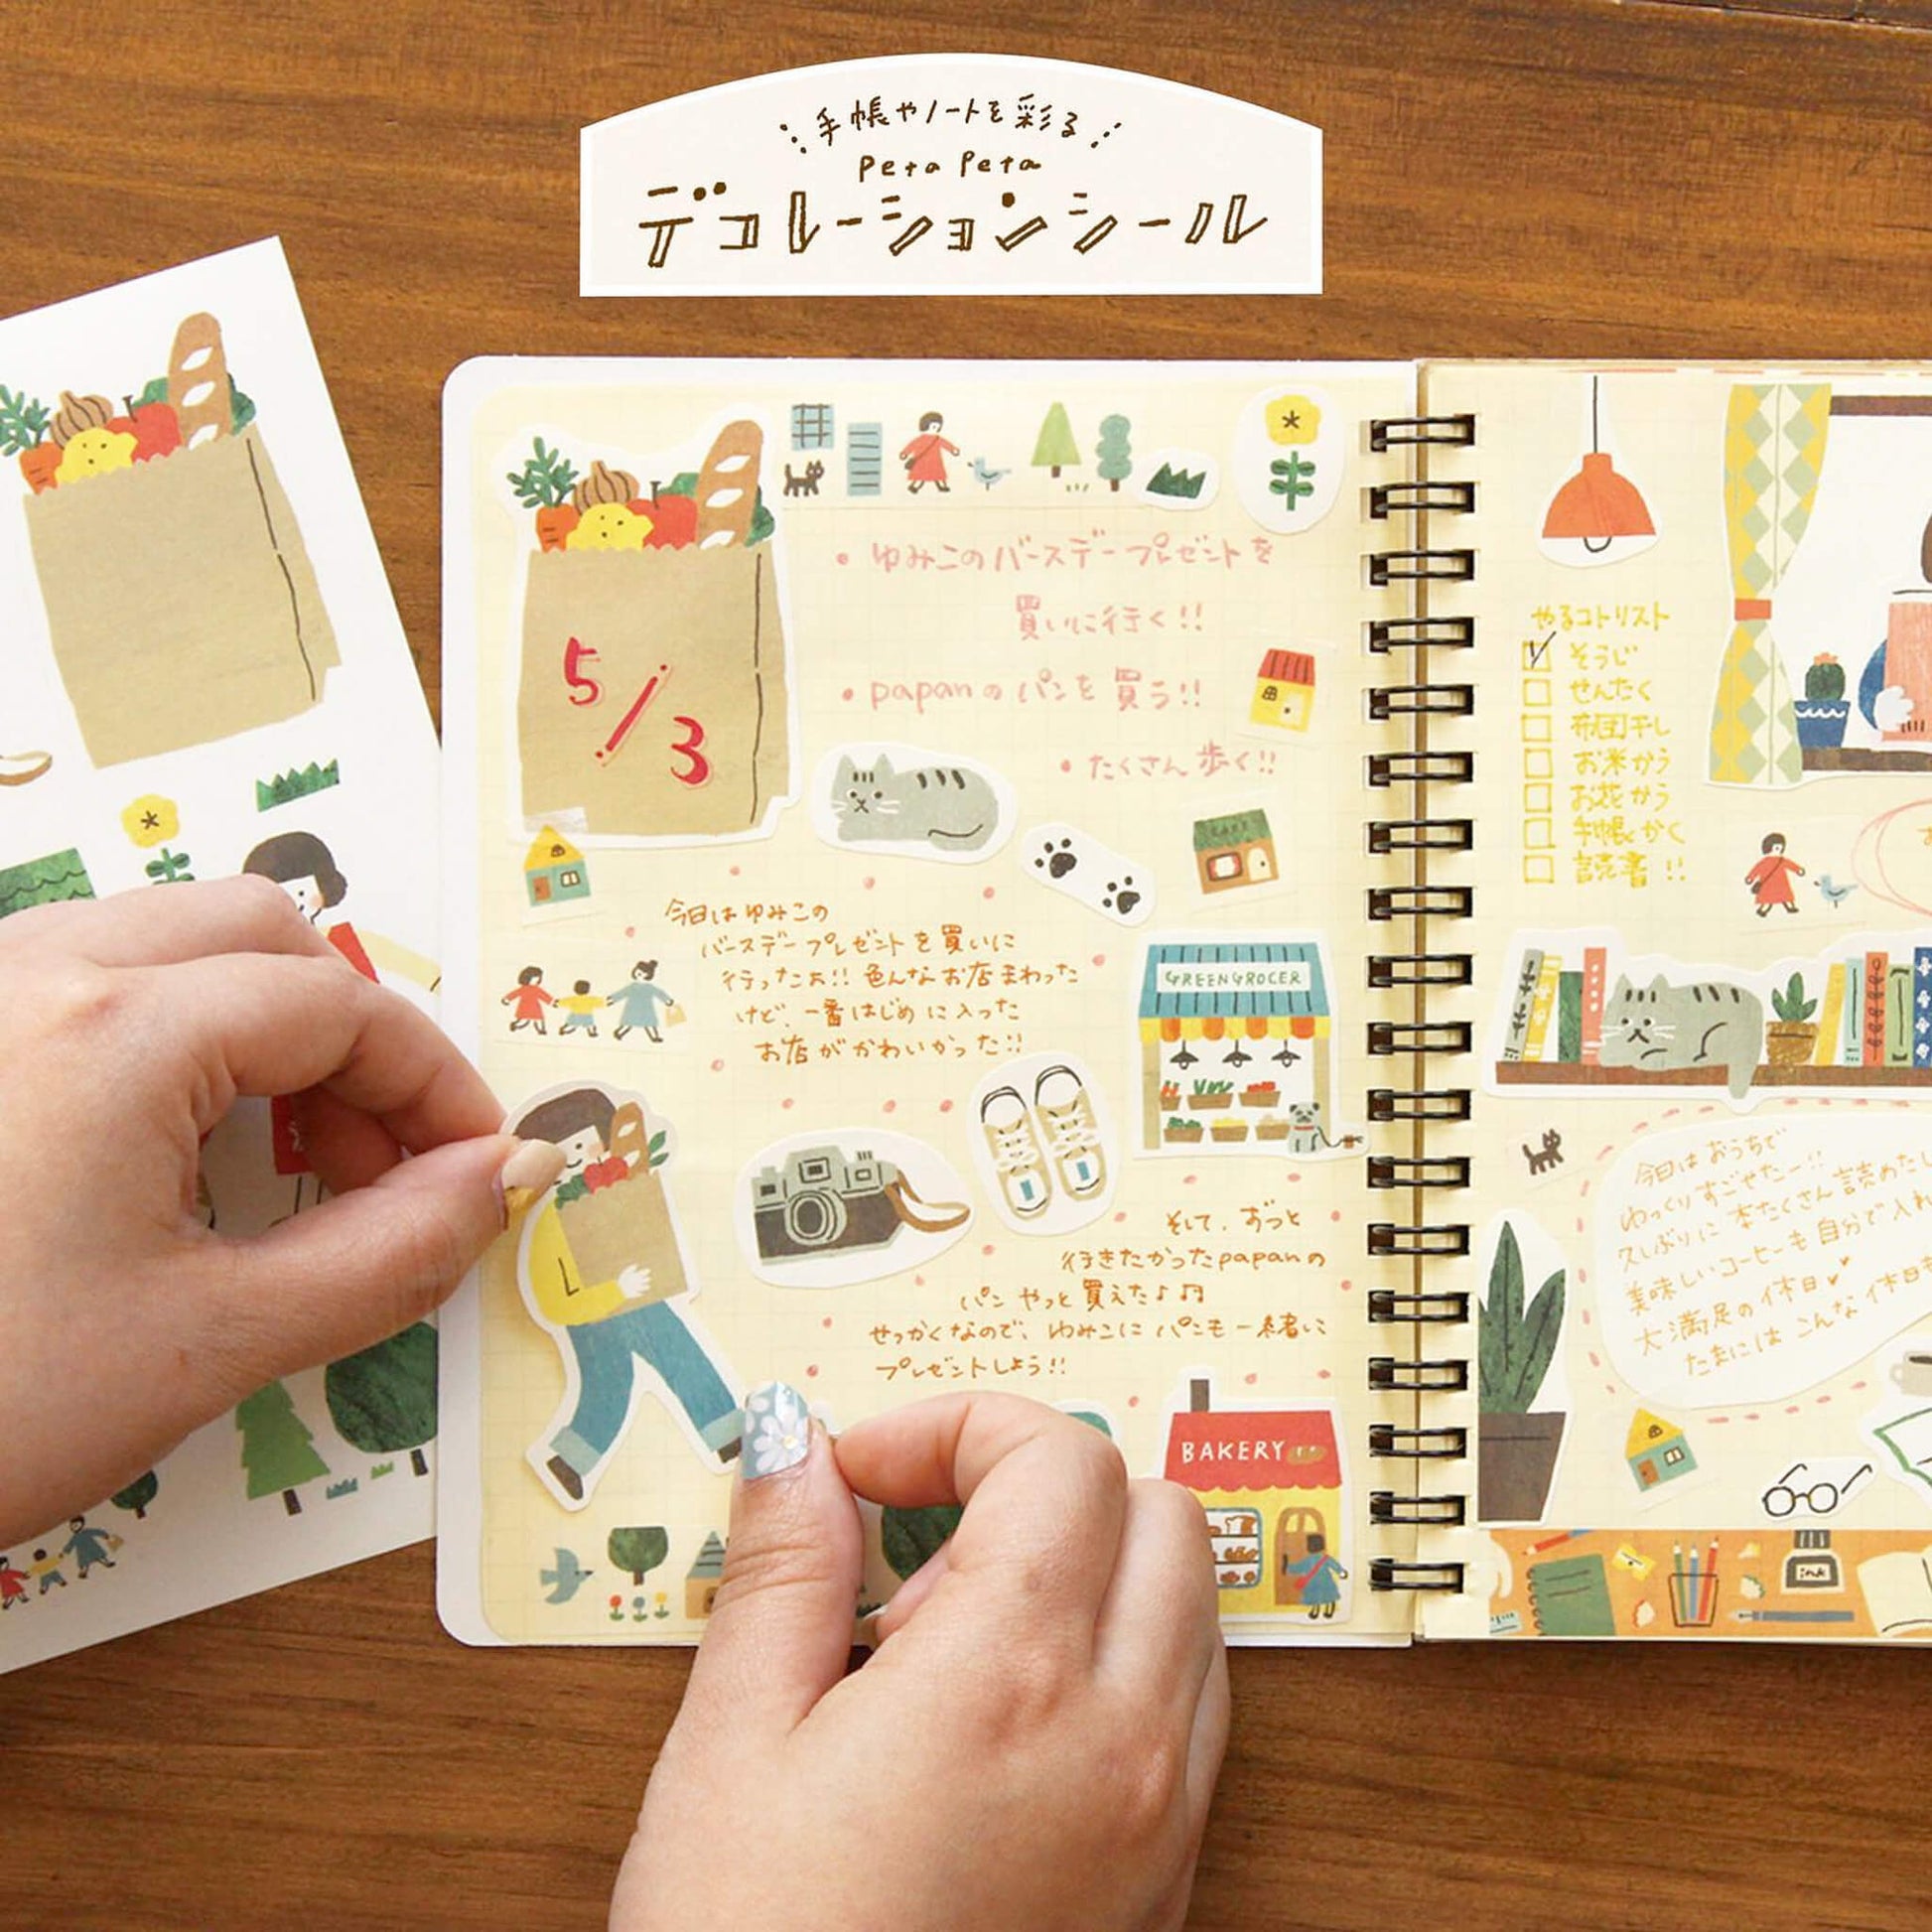 手帳やノートを彩る
Peta Peta
デコレーションシール
5/3
• ゆみこのバースデープレゼントを
買いに行く!!
• papanのパンを買う!!
• たくさん歩く!!
CAFE
今日はゆみこの
バースデープレゼントを買いに
行ったよ!! 色んなお店まわった
けど、一番はじめに入った
お店がかわいかった!!
GREENGROCER
そして、ずっと
行きたかったpapanの
パンやっと買えた♪♫
せっかくなので、ゆみこにパンも一緒に
プレゼントしよう!!
BAKERY
やるコトリスト
そうじ
せんたく
布団干し
お米かう
お花かう
手帳かく
読書!!
今日はおうちで
ゆっくりすごせたー!!
久しぶりに本たくさん読めたし
美味しいコーヒーも自分で入れ
大満足の休日
たまにはこんな休日も
ink